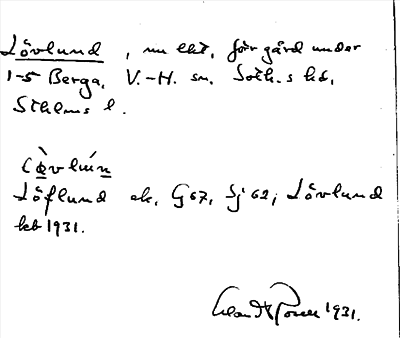 Lövlund, nu ebt, förr gård under
1-5 Berga, V.-H. sn, Soth.s hd,
Sthlms l.
Löflund ek, G 67, Sj 62; Lövlund
kb 1931.
1931.